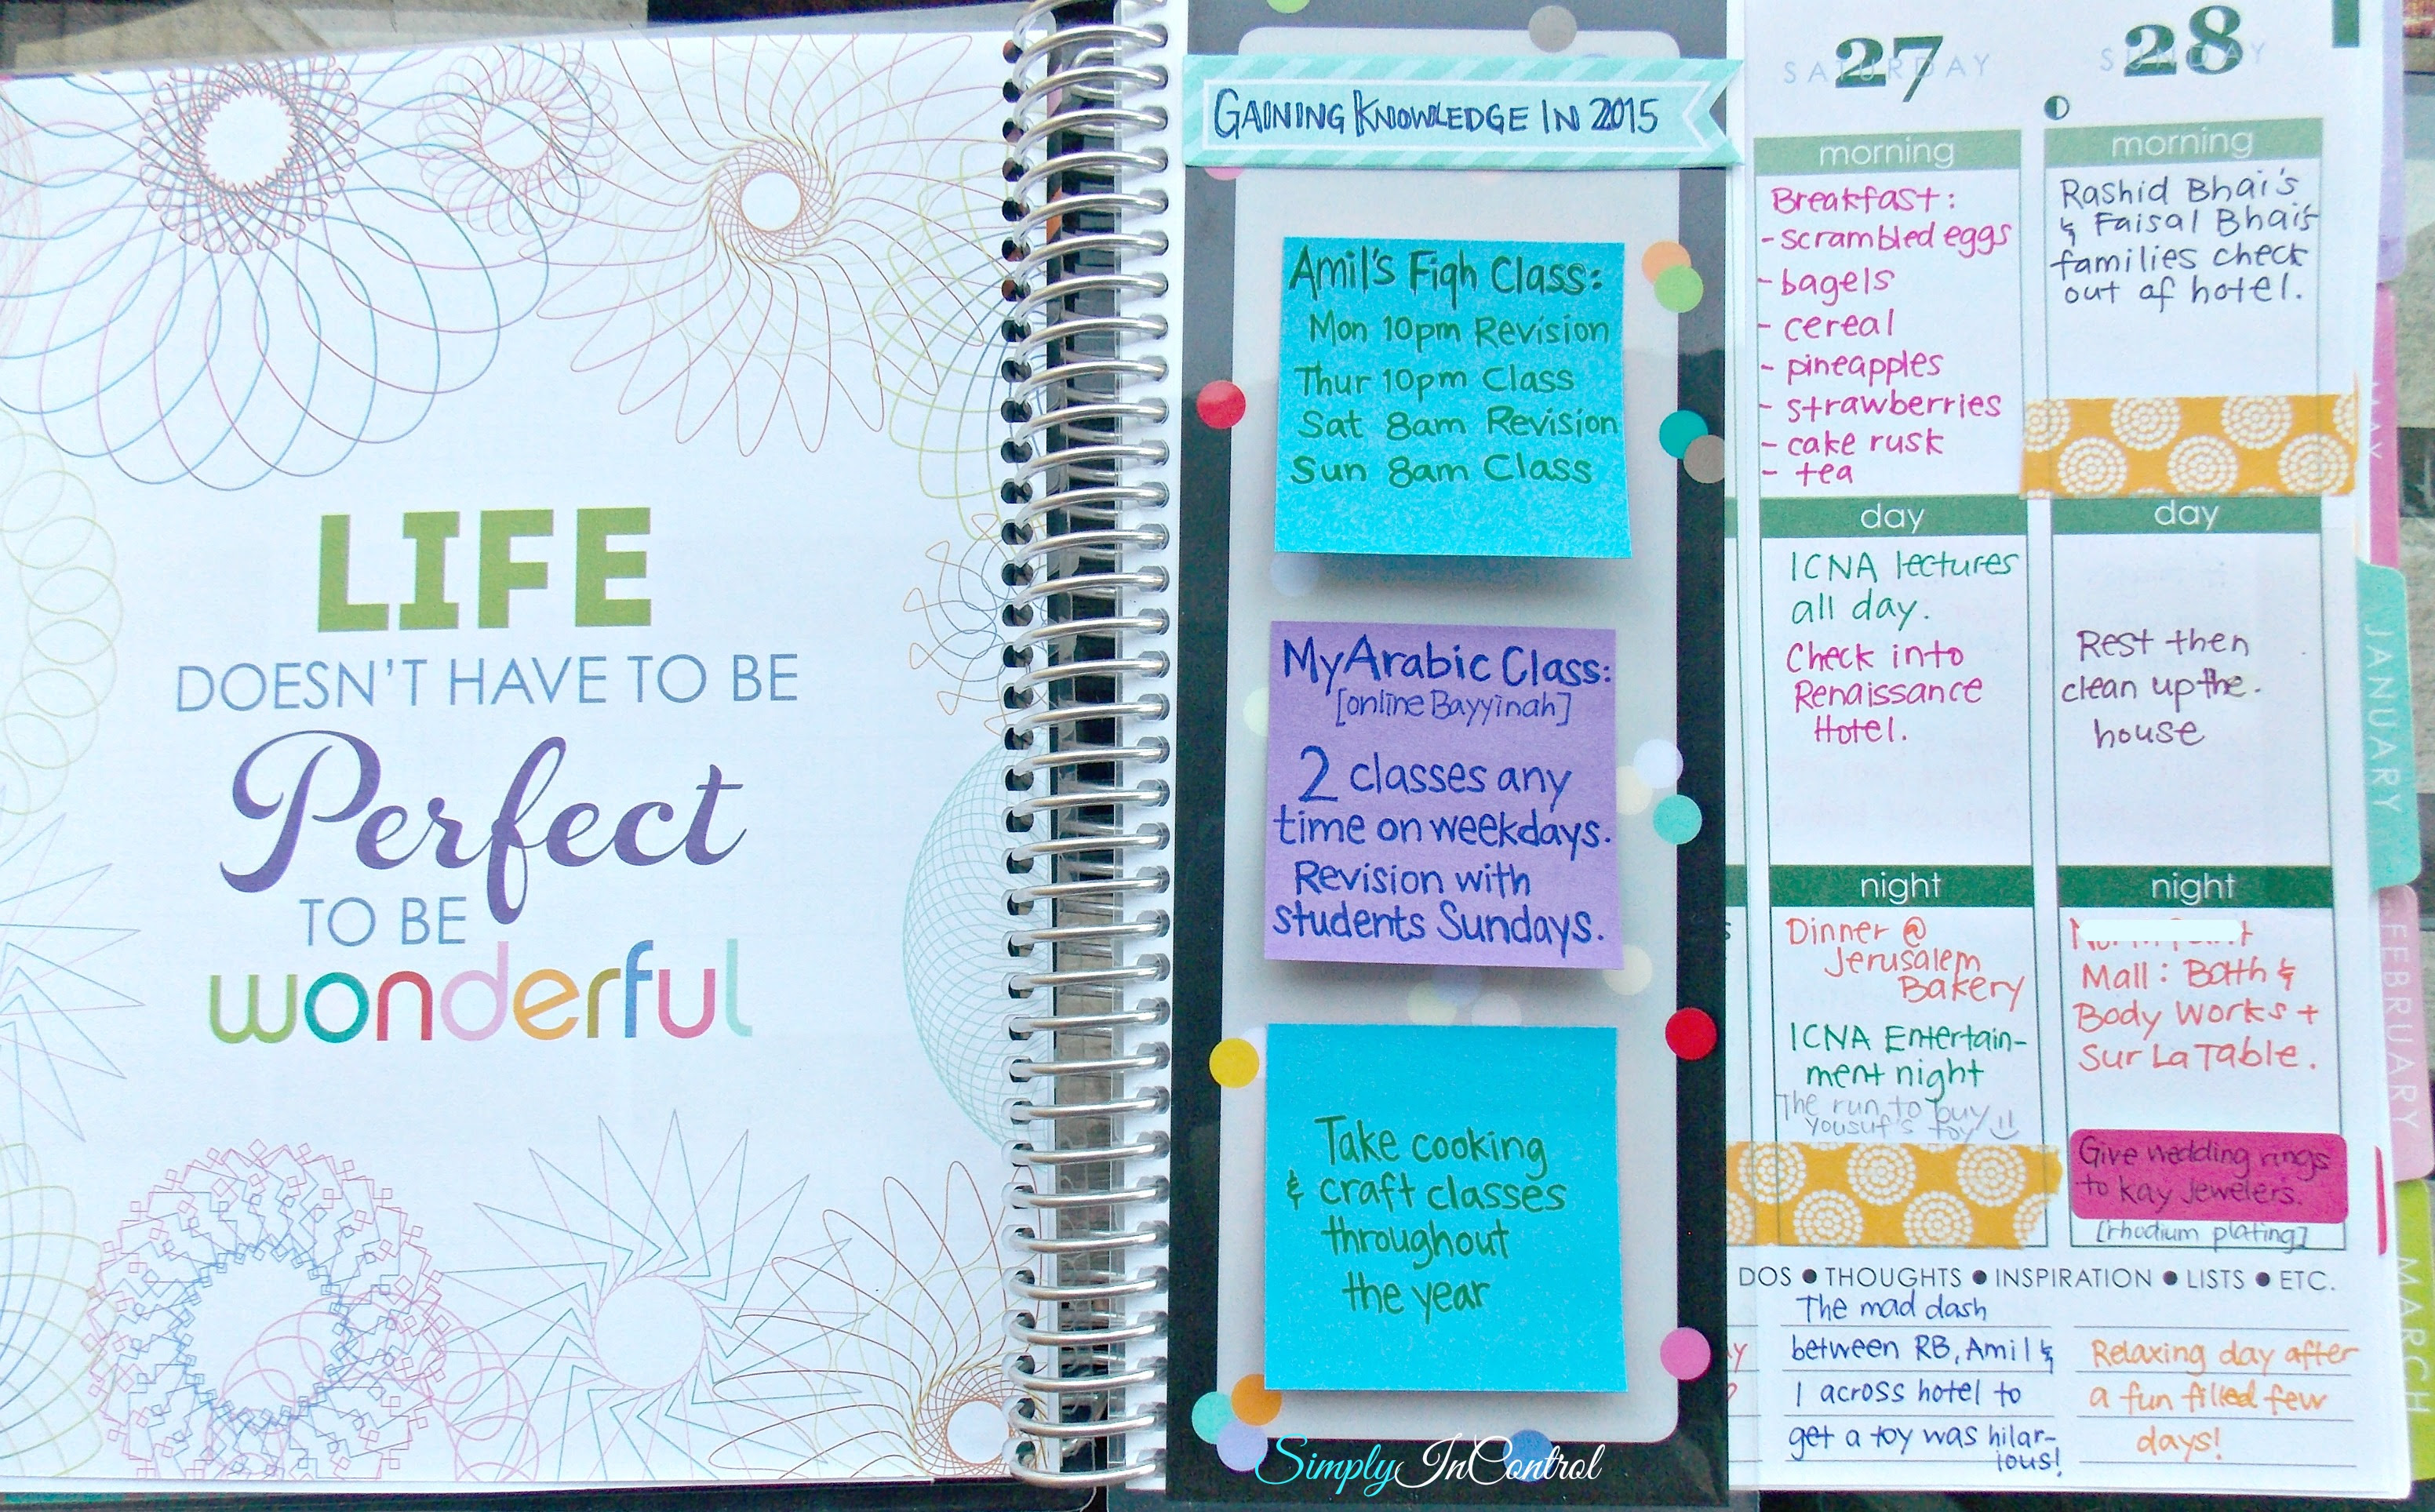 LIFE
DOESN'T HAVE TO BE
Perfect
TO BE
wonderful
GAINING KNOWLEDGE IN 2015
Amil's Fiqh Class:
Mon 10pm Revision
Thur 10pm Class
Sat 8am Revision
Sun 8am Class
My Arabic Class:
[online Bayyinah]
2 classes any
time on weekdays.
Revision with
students Sundays.
Take cooking
& craft classes
throughout
the year
SimplyInControl
27
SATURDAY
morning
Breakfast:
- scrambled eggs
- bagels
- cereal
- pineapples
- strawberries
- cake rusk
- tea
day
ICNA lectures
all day.
Check into
Renaissance
Hotel.
night
Dinner @
Jerusalem
Bakery
ICNA Entertain-
ment night
The run to buy
Yousuf's toy
28
SUNDAY
morning
Rashid Bhai's
& Faisal Bhai's
families check
out of hotel.
day
Rest then
clean up the.
house
night
Mall: Bath &
Body Works +
Sur La Table.
Give wedding rings
to Kay Jewelers.
[rhodium plating]
DOS ● THOUGHTS ● INSPIRATION ● LISTS ● ETC.
The mad dash
between RB, Amil &
I across hotel to
get a toy was hilar-
ious!
Relaxing day after
a fun filled few
days!
MAY
JANUARY
FEBRUARY
MARCH